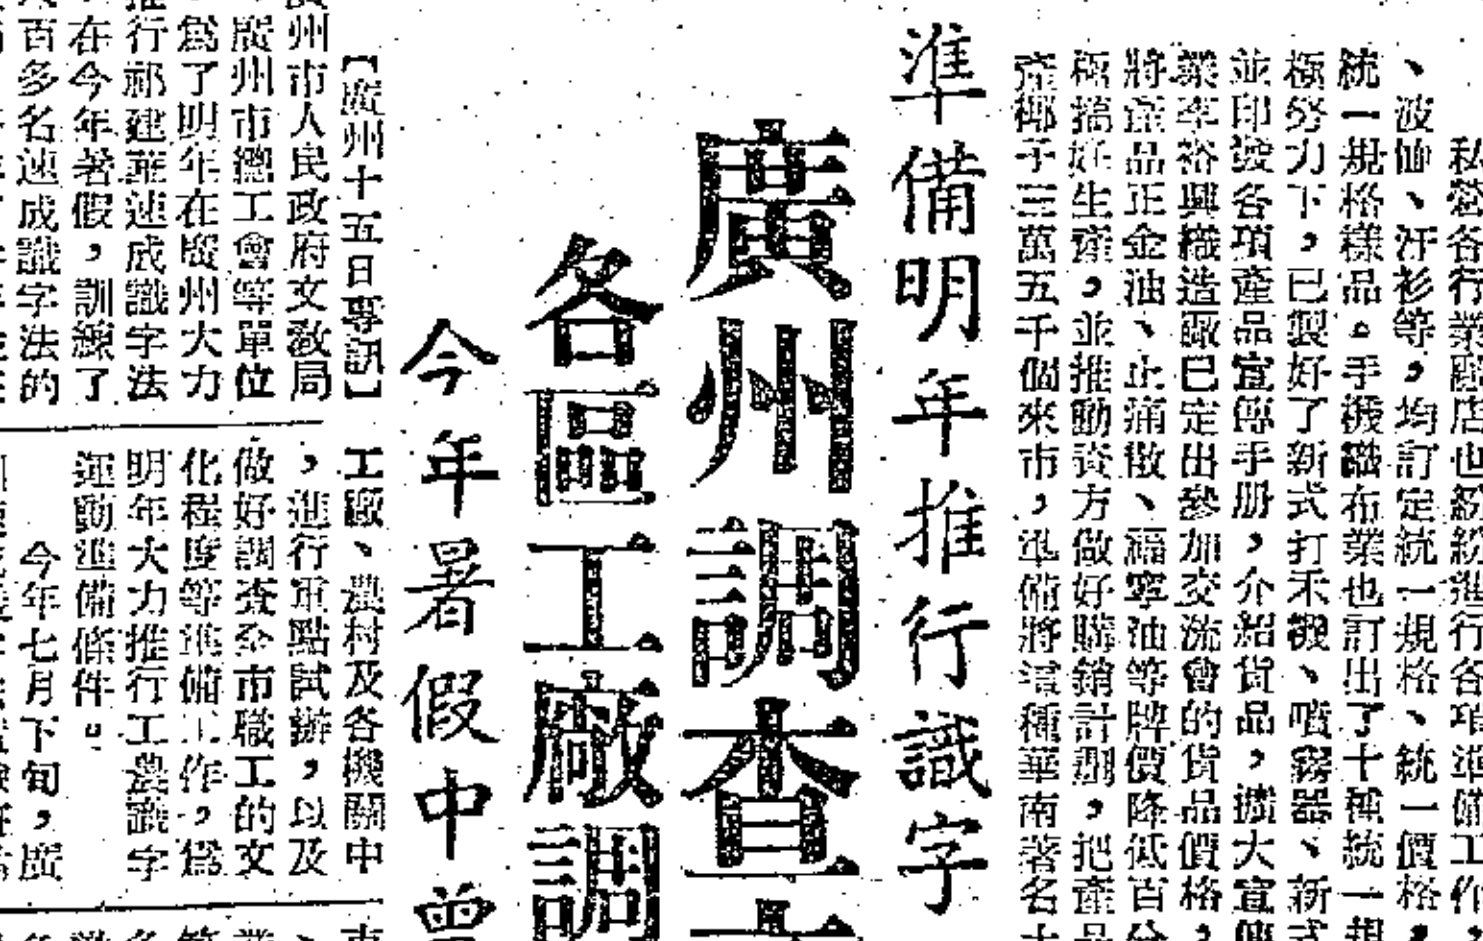 私營各行業廠店也紛紛進行各項準備工作，
、波恤、汗衫等，均訂定統一規格、統一價格，
統一規格樣品。手機織布業也訂出了十種統一規
極努力下，已製好了新式打禾機、噴霧器、新式
並印發各項產品宣傳手册，介紹貨品，擴大宣傳
業李裕興織造廠已定出參加交流會的貨品價格，
將產品正金油、止痛散、福寧油等牌價降低百分
極搞好生產，並推動資方做好購銷計劃，把產品
產椰子三萬五千個來市，準備將這種華南著名土
準備明年推行識字
廣州調查工
各區工廠調
今年暑假中曾
【廣州十五日專訊】
州市人民政府文教局
、廣州市總工會等單位
爲了明年在廣州大力
推行祁建華速成識字法
，在今年暑假，訓練了
百多名速成識字法的
工廠、農村及各機關中
，進行重點試辦，以及
做好調查全市職工的文
化程度等準備工作，爲
明年大力推行工農識字
運動準備條件。
今年七月下旬，廣